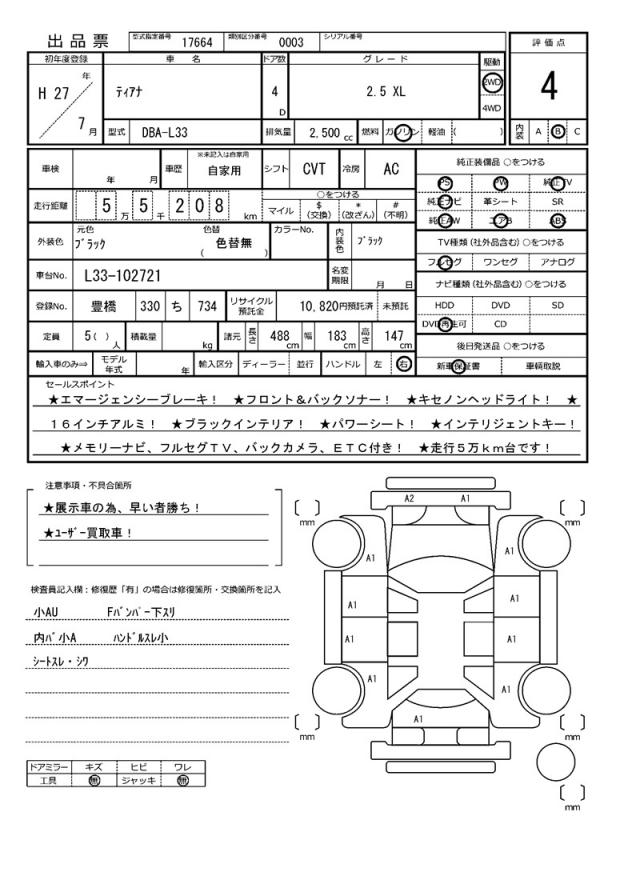 出品票 型式指定番号 17664 類別区分番号 0003 シリアル番号
評価点
4
内装 A B C
初年度登録 車名 ドア数 グレード 駆動
H 27 年 7 月 ティアナ 4 D 2.5 XL 2WD 4WD
型式 DBA-L33 排気量 2,500 cc 燃料 ガソリン 軽油 ( )
車検 年 月 車歴 ※未記入は自家用 自家用 シフト CVT 冷房 AC
走行距離 5 万 5 千 2 0 8 km ○をつける マイル $ (交換) * (改ざん) # (不明)
外装色 元色 ブラック 色替 ( 色替無 ) カラーNo. 内装色 ブラック
車台No. L33-102721 名変期限 月 日
登録No. 豊橋 330 ち 734 リサイクル預託金 10,820円預託済 未預託
定員 5( ) 人 積載量 kg 諸元 長さ 488 cm 幅 183 cm 高さ 147 cm
輸入車のみ⇒ モデル年式 年 輸入区分 ディーラー 並行 ハンドル 左 右
純正装備品 ○をつける
PS PW 純正TV
純正ナビ 革シート SR
純正AW エアB ABS
TV種類 (社外品含む) ○をつける
フルセグ ワンセグ アナログ
ナビ種類 (社外品含む) ○をつける
HDD DVD SD
DVD再生可 CD
後日発送品 ○をつける
新車保証書 車輌取説
セールスポイント
★エマージェンシーブレーキ！ ★フロント＆バックソナー！ ★キセノンヘッドライト！ ★
１６インチアルミ！ ★ブラックインテリア！ ★パワーシート！ ★インテリジェントキー！
★メモリーナビ、フルセグＴＶ、バックカメラ、ＥＴＣ付き！ ★走行５万ｋｍ台です！
注意事項・不具合箇所
★展示車の為、早い者勝ち！
★ユーザー買取車！
検査員記入欄：修復歴「有」の場合は修復箇所・交換箇所を記入
小AU Fバンパー下スリ
内バ小A ハンドルスレ小
シートスレ・シワ
ドアミラー キズ ヒビ ワレ
工具 無 ジャッキ 無
A2 A1
mm mm
A1 A1
A1 A1
A1 A1
A1 A1
A1
mm mm
mm